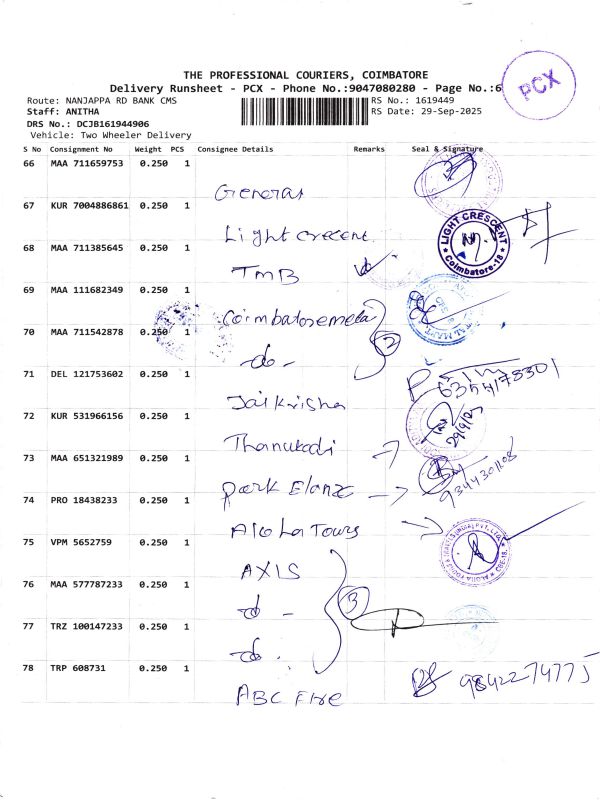 THE PROFESSIONAL COURIERS, COIMBATORE
Delivery Runsheet - PCX - Phone No.:9047080280 - Page No.:6
PCX
Route: NANJAPPA RD BANK CMS
RS No.: 1619449
Staff: ANITHA
RS Date: 29-Sep-2025
DRS No.: DCJB161944906
Vehicle: Two Wheeler Delivery
S No Consignment No Weight PCS Consignee Details Remarks Seal & Signature
66 MAA 711659753 0.250 1
General
67 KUR 7004886861 0.250 1
Light crecent
LIGHT CRESCENT
Coimbatore-18
68 MAA 711385645 0.250 1
TMB
69 MAA 111682349 0.250 1
Coimbatore
70 MAA 711542878 0.250 1
-do-
2
71 DEL 121753602 0.250 1
Jai Krishna
72 KUR 531966156 0.250 1
29/9/25
73 MAA 651321989 0.250 1
Park Elanza
74 PRO 18438233 0.250 1
Aloha Tours
75 VPM 5652759 0.250 1
AXIS
76 MAA 577787233 0.250 1
do -
3
77 TRZ 100147233 0.250 1
-do.
78 TRP 608731 0.250 1
ABC Fire